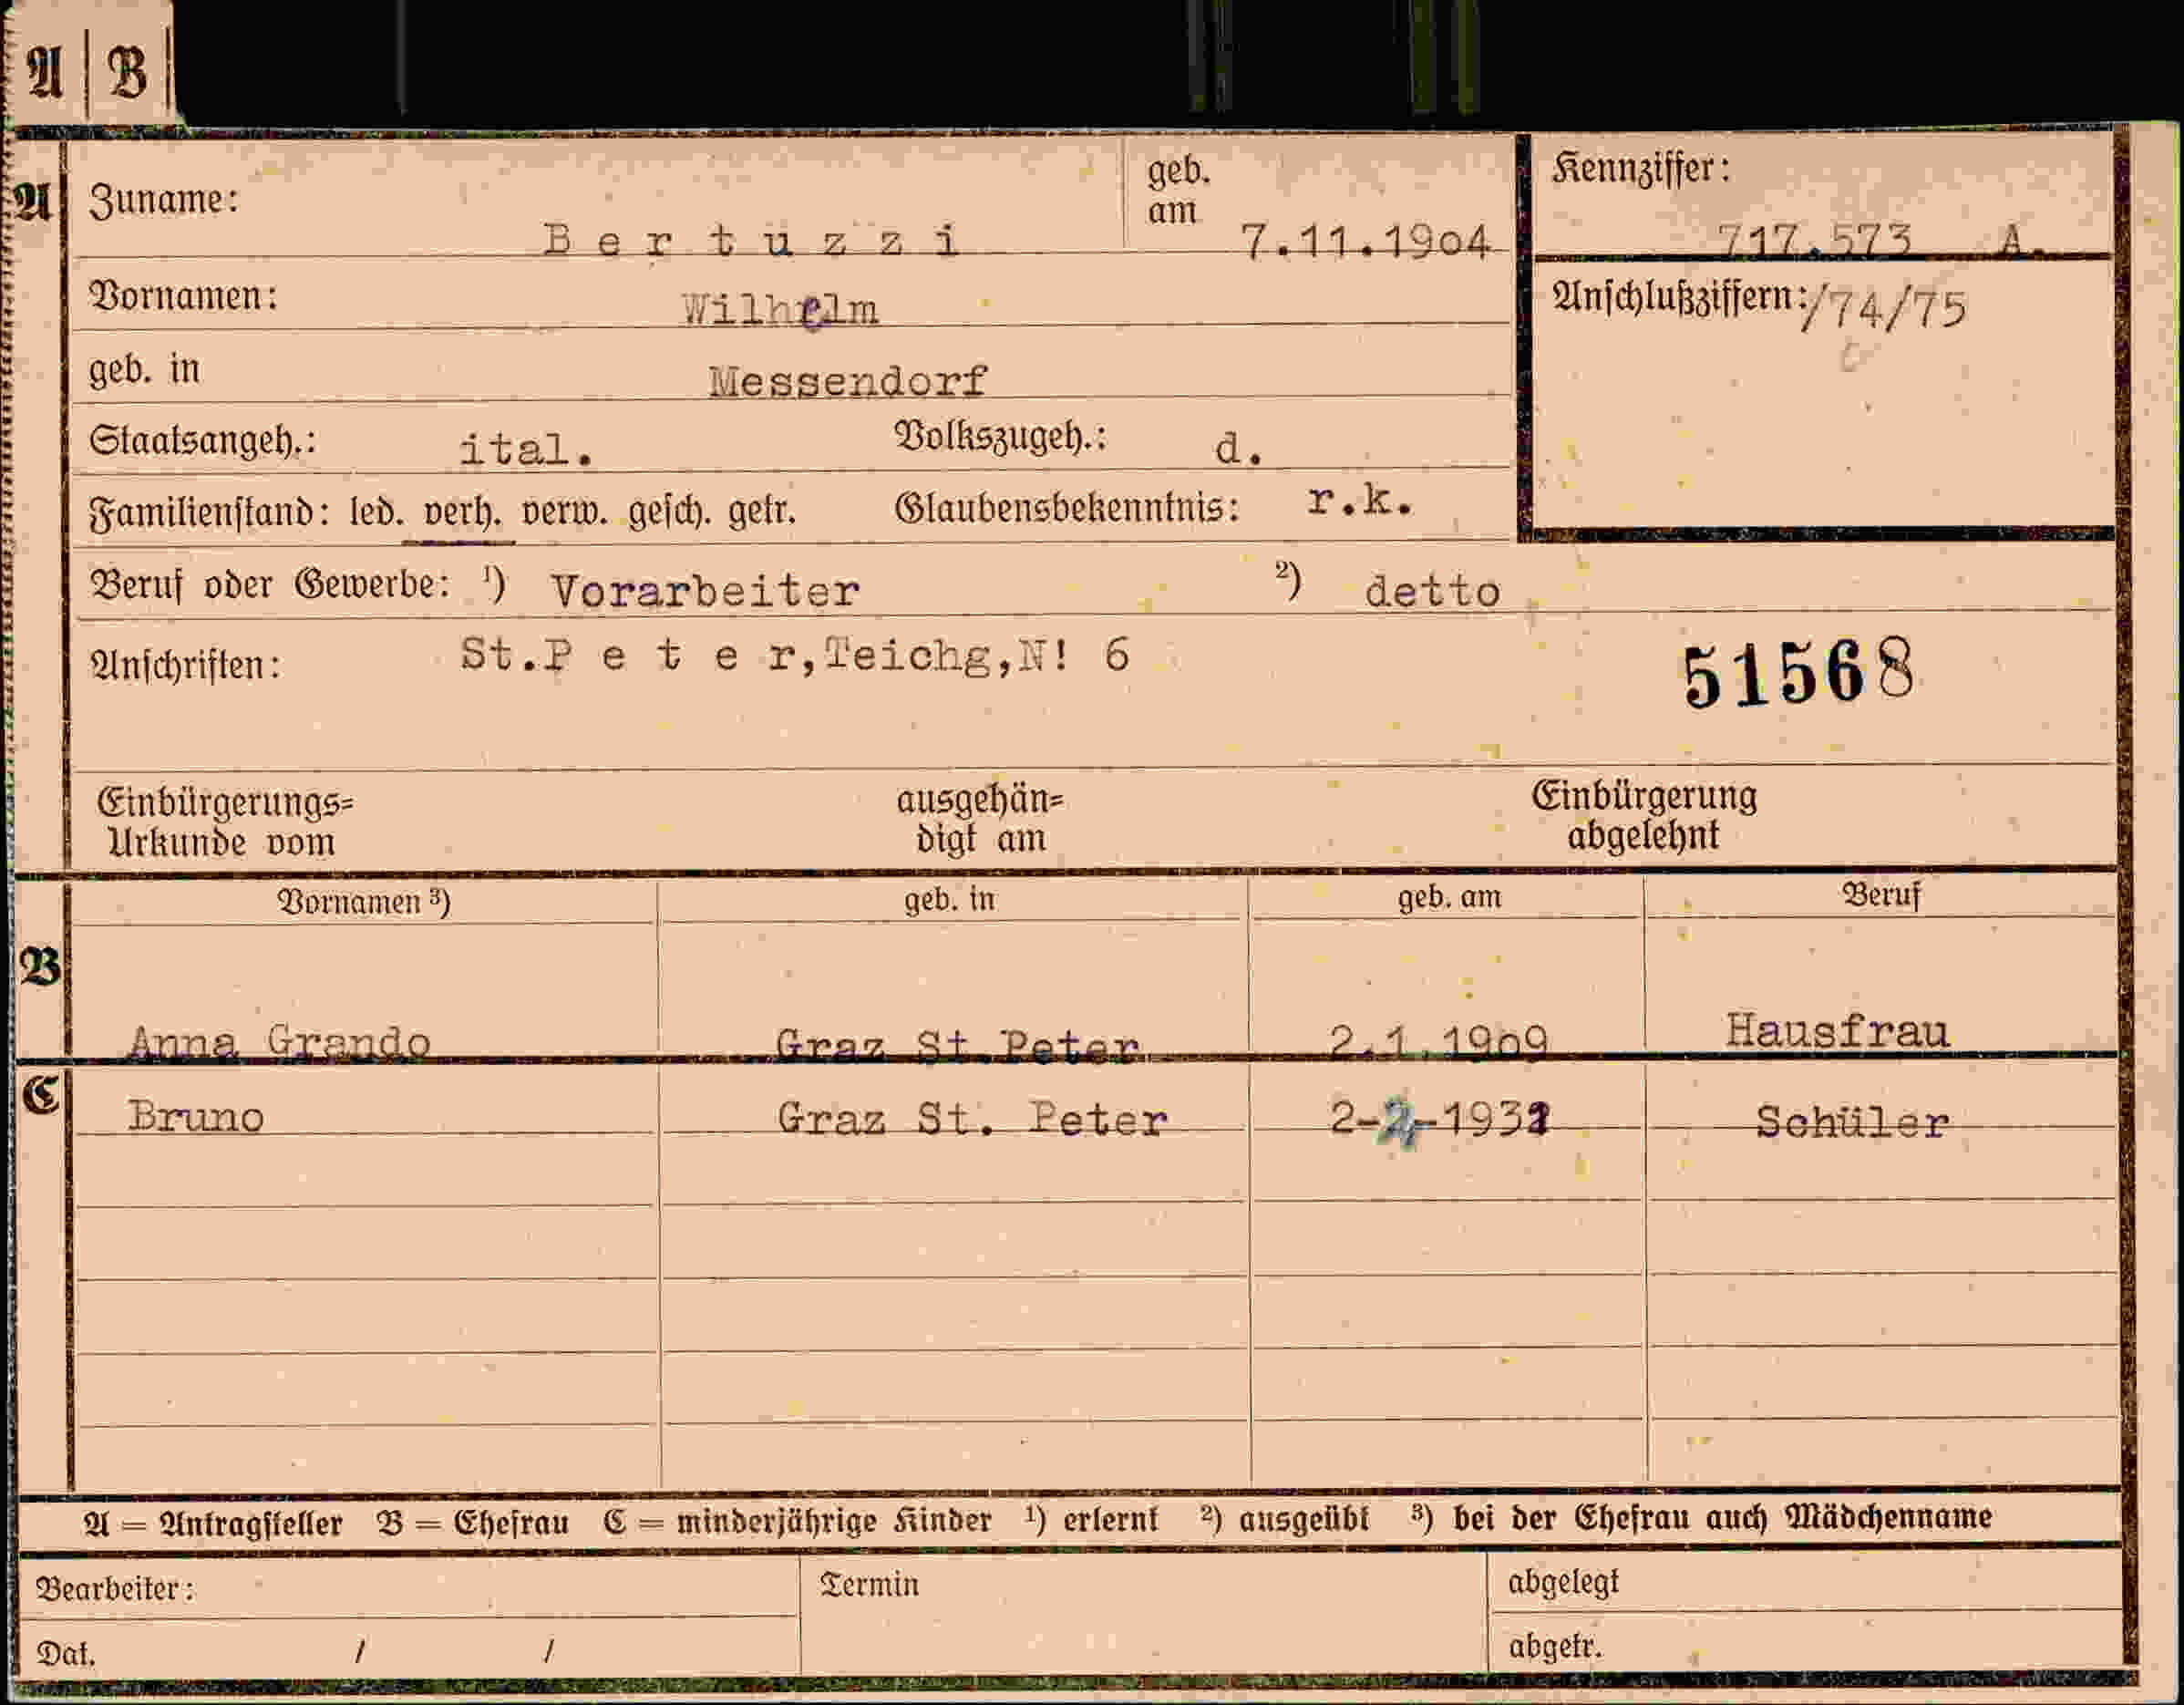 A B
A
Zuname: Bertuzzi geb. am 7.11.1904
Kennziffer: 717.573 A.
Vornamen: Wilhelm
Anschlußziffern: /74/75
geb. in Messendorf
Staatsangeh.: ital. Volkszugeh.: d.
Familienstand: led. verh. verw. gesch. getr. Glaubensbekenntnis: r.k.
Beruf oder Gewerbe: ¹) Vorarbeiter ²) detto
Anschriften: St.Peter,Teichg,N! 6
51568
Einbürgerungs= ausgehän= Einbürgerung
Urkunde vom digt am abgelehnt
Vornamen ³) geb. in geb. am Beruf
B
Anna Grando Graz St.Peter 2.1.1909 Hausfrau
C
Bruno Graz St. Peter 2-2-1931 Schüler
A = Antragsteller B = Ehefrau C = minderjährige Kinder ¹) erlernt ²) ausgeübt ³) bei der Ehefrau auch Mädchenname
Bearbeiter: Termin abgelegt
Dat. / / abgetr.